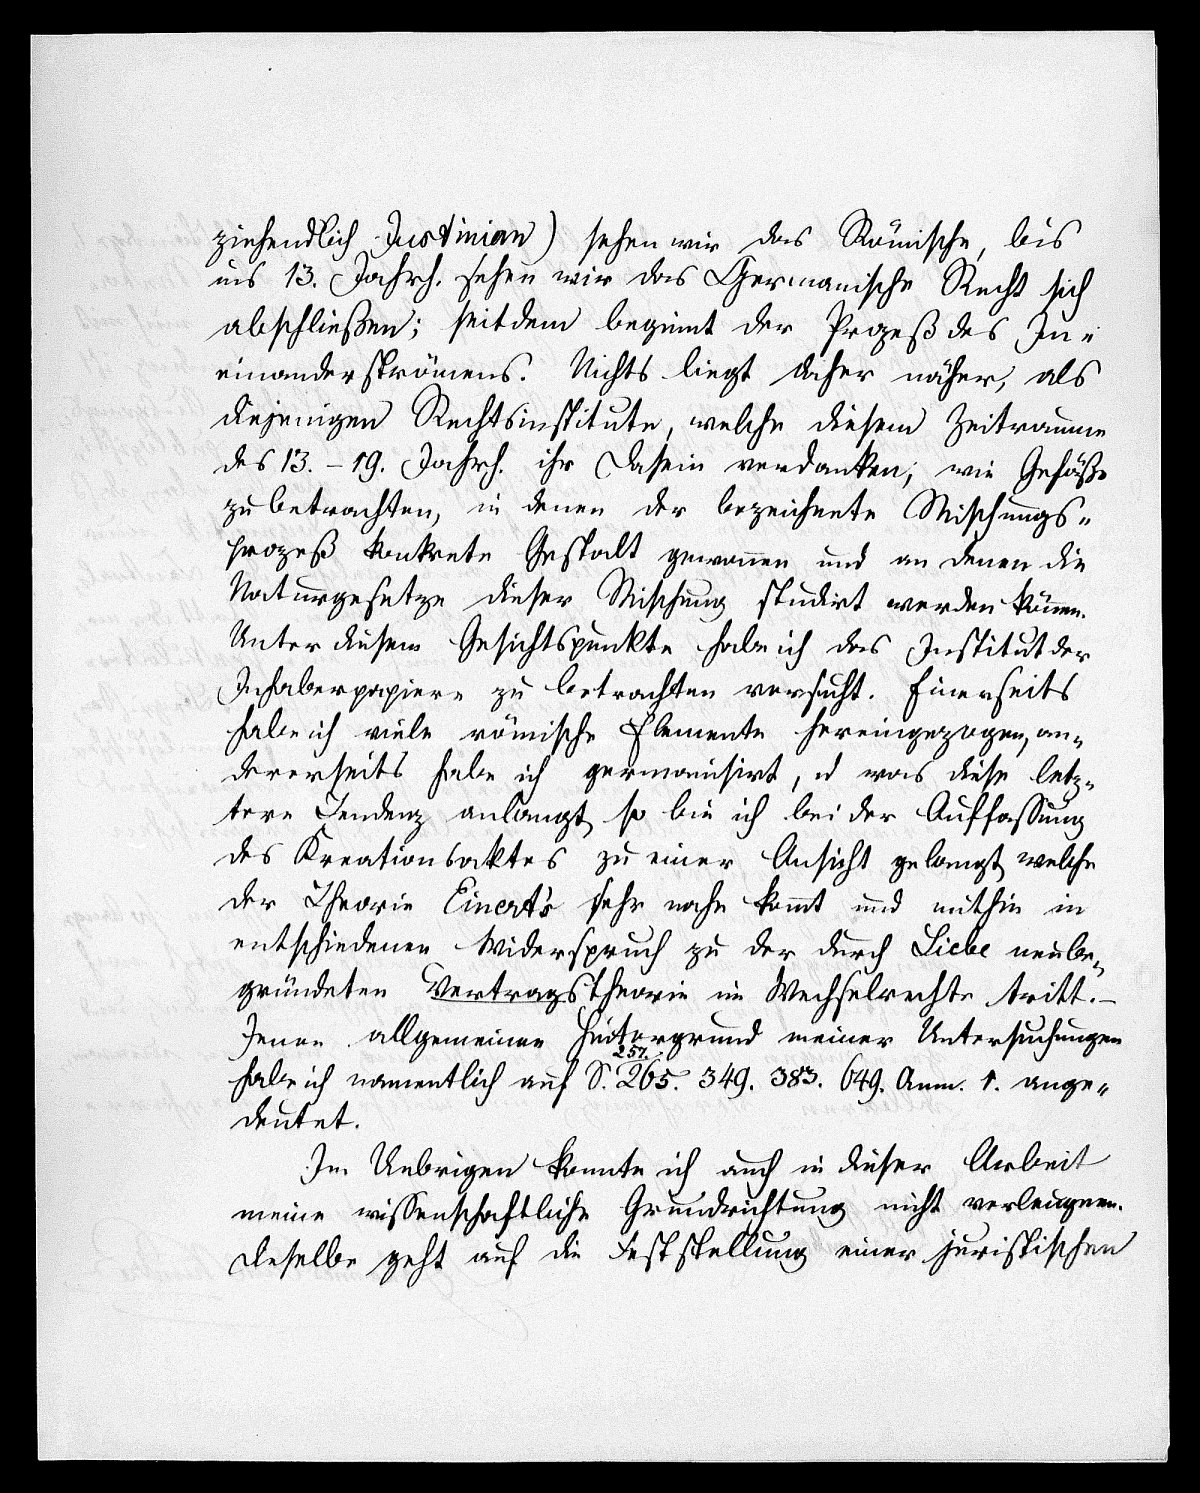 ziehendlich Justinian) sehen wir das Römische, bis
ins 13. Jahrh. sehen wir das Germanische Recht sich
abschließen; seitdem beginnt der Prozeß des In-
einanderströmens. Nichts liegt daher näher, als
diejenigen Rechtsinstitute, welche diesem Zeitraume
des 13. – 19. Jahrh. ihr Dasein verdanken, wie Gefäße
zu betrachten, in denen der bezeichnete Mischungs-
prozeß konkrete Gestalt gewonnen und an denen die
Naturgesetze dieser Mischung studirt werden können.
Unter diesem Gesichtspunkte habe ich das Institut der
Inhaberpapiere zu betrachten versucht. Einerseits
habe ich viele römische Elemente hereingezogen, an-
dererseits habe ich germanisirt, u was diese letz-
tere Tendenz anlangt, so bin ich bei der Auffassung
des Kreationsaktes zu einer Ansicht gelangt, welche
der Theorie Einert's sehr nahe kommt und mithin in
entschiedenen Widerspruch zu der durch Liebe neube-
gründeten Vertragstheorie im Wechselrechte tritt. –
Jenen allgemeinen Hintergrund meiner Untersuchungen
257.
habe ich namentlich auf S. 265. 349. 383. 649. Anm. 1. ange-
deutet.
Im Uebrigen konnte ich auch in dieser Arbeit
meine wissenschaftliche Grundrichtung nicht verleugnen.
Dieselbe geht auf die Feststellung einer juristischen